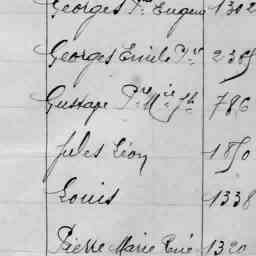 Georges Pre Eugène 1302
Georges Emile Pre
Gustave Pre Mie Jh 786
Jules Léon 1850
Louis 1338
Pierre Marie René 1320